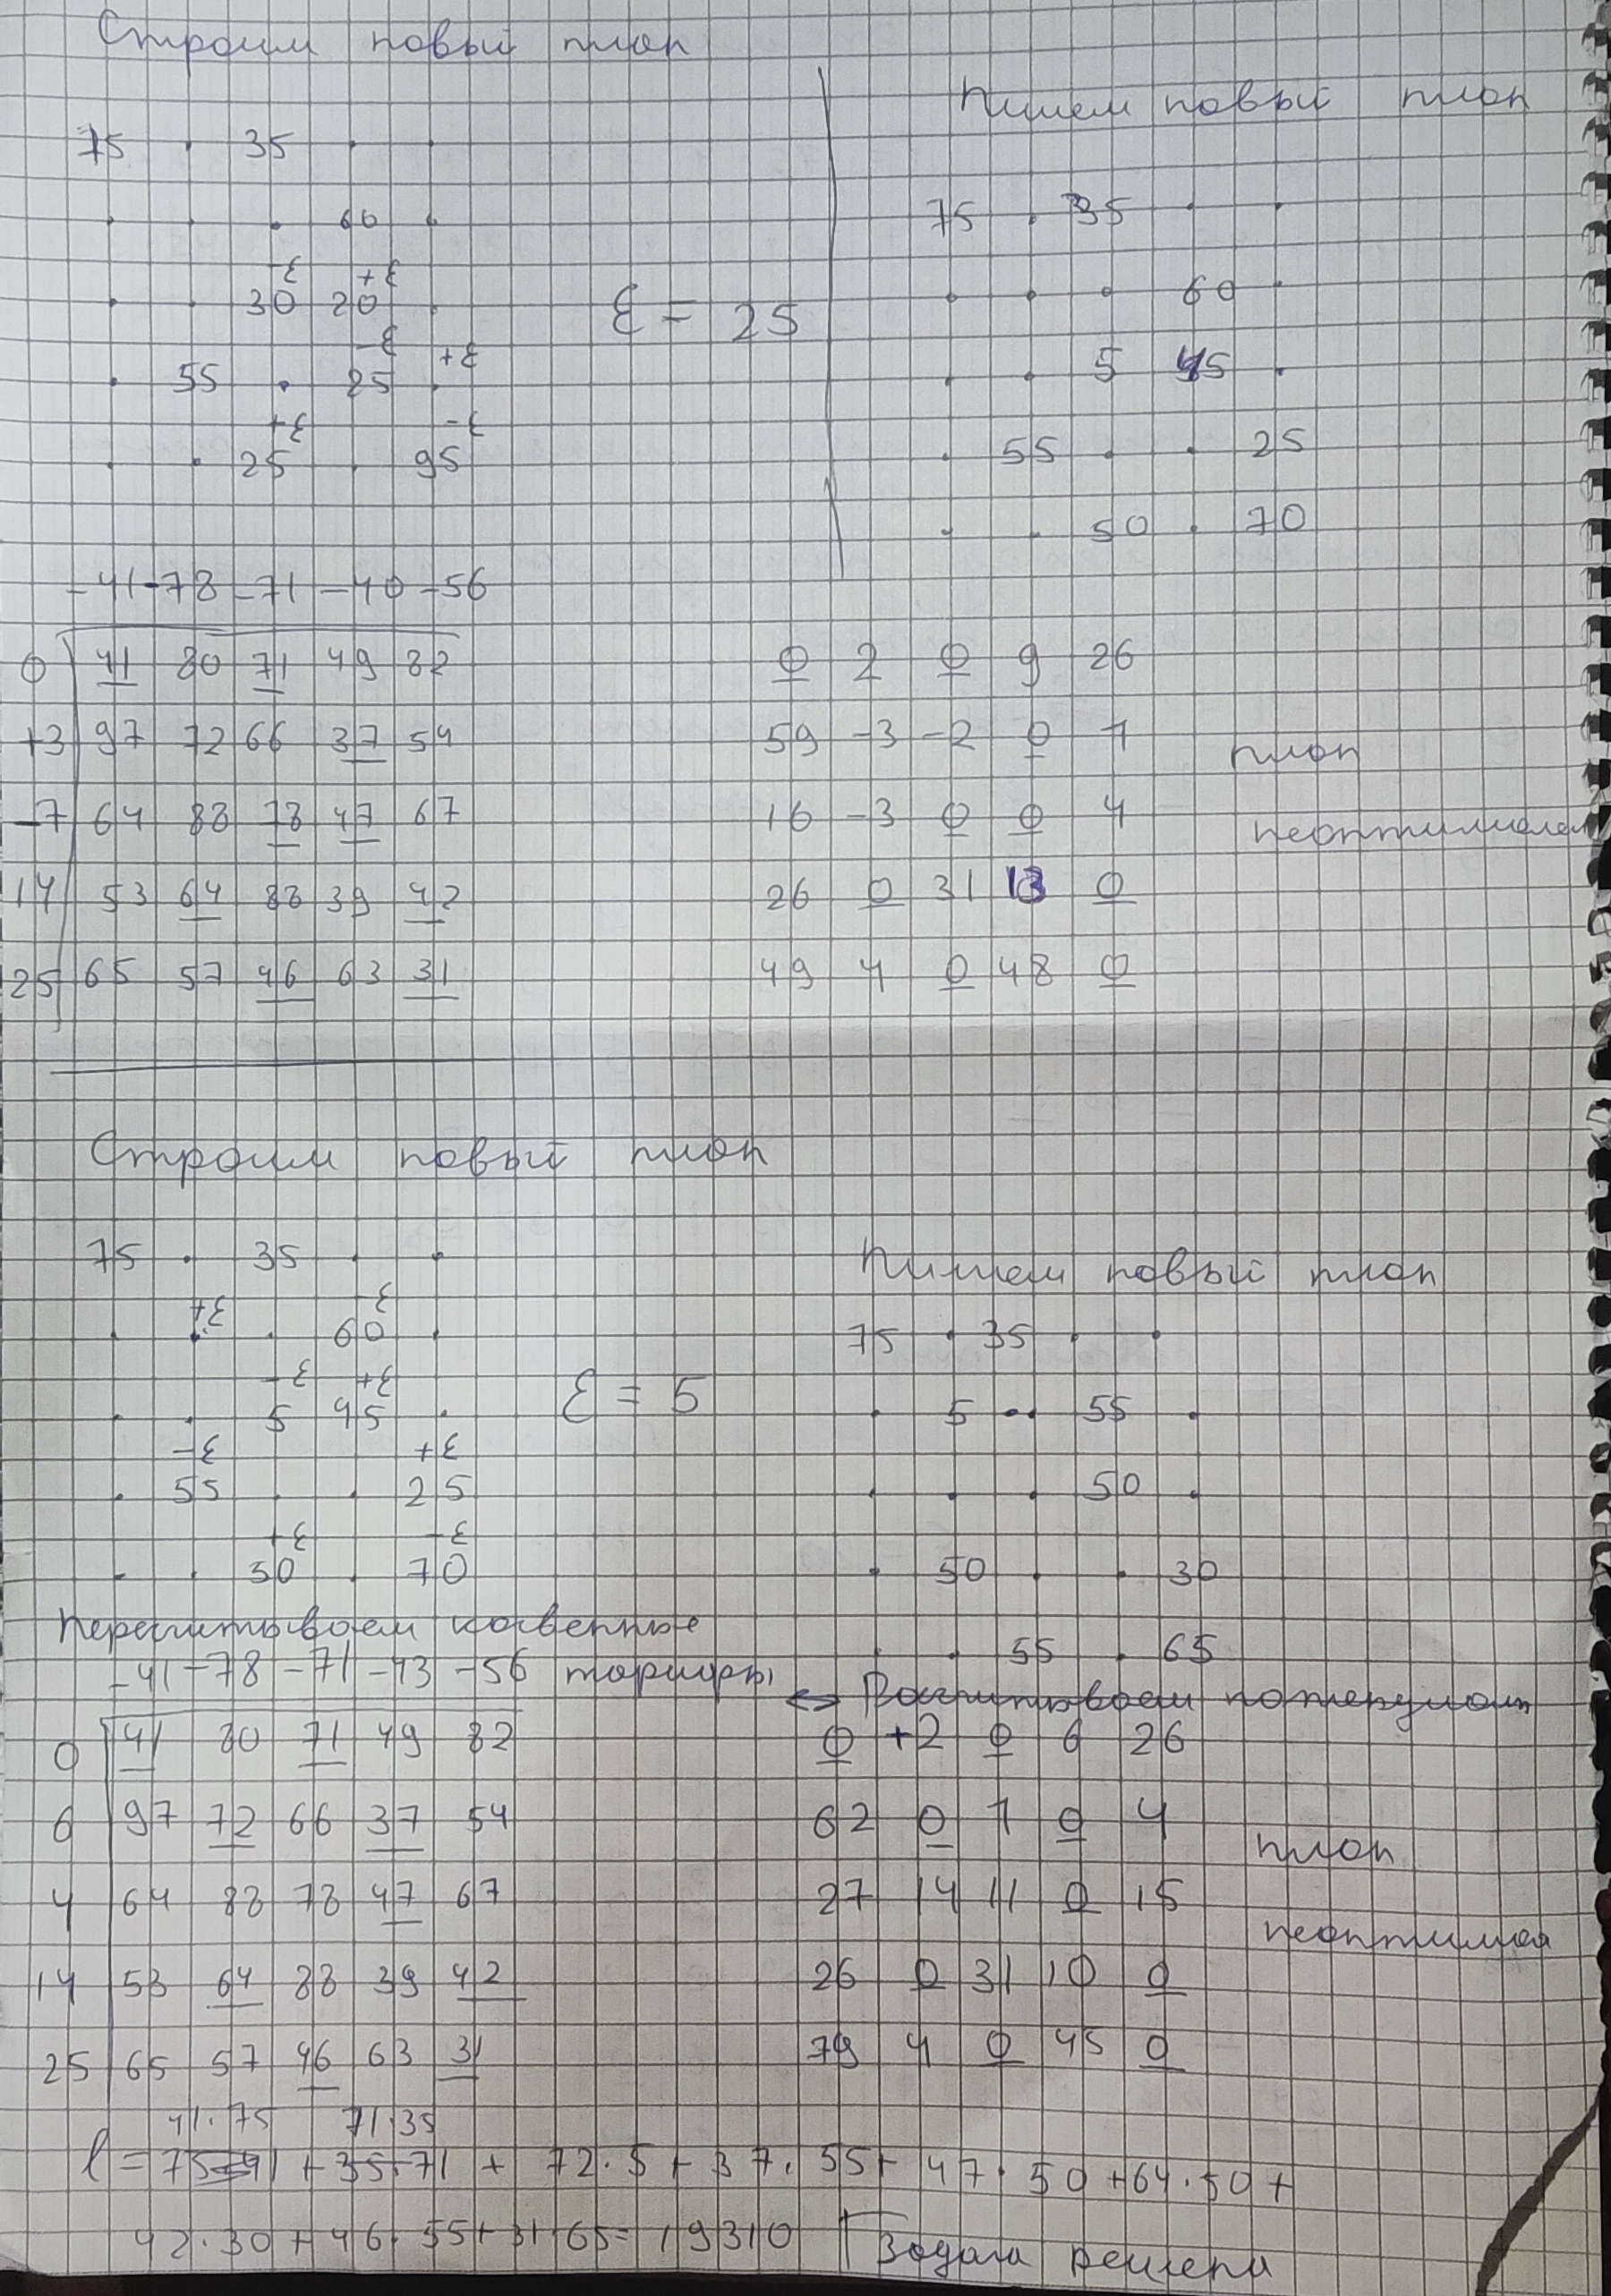 Строим новый план
75 . 35 . .
. . . 60 .
-ε +ε
. . 30 20 .
-ε +ε
. 55 . 25 .
+ε -ε
. . 25 . 95
ε = 25
Пишем новый план
75 . 35 . .
. . . 60 .
. . 5 45 .
. 55 . . 25
. . 50 . 70
-41 -78 -71 -40 -56
0 41 80 71 49 82
+3 97 72 66 37 54
-7 64 88 78 47 67
14 53 64 88 39 42
25 65 57 46 63 31
0 2 0 9 26
59 -3 -2 0 1
16 -3 0 0 4
26 0 31 13 0
49 4 0 48 0
план
неоптимален
Строим новый план
75 . 35 . .
+ε -ε
. . . 60 .
-ε +ε
. . 5 45 .
-ε +ε
. 55 . . 25
+ε -ε
. . 50 . 70
ε = 5
Пишем новый план
75 . 35 . .
. 5 . 55 .
. . . 50 .
. 50 . . 30
. . 55 . 65
Пересчитываем косвенные
тарифы
<-> Рассчитываем потенциалы
-41 -78 -71 -43 -56
0 41 80 71 49 82
6 97 72 66 37 54
4 64 88 78 47 67
14 53 64 88 39 42
25 65 57 46 63 31
0 +2 0 6 26
62 0 1 0 4
27 14 11 0 15
26 0 31 10 0
79 4 0 45 0
план
неоптимал
41·75 71·35
l = 75·41 + 35·71 + 72·5 + 37·55 + 47·50 + 64·50 +
42·30 + 46·55 + 31·65 = 19310 Задача решена